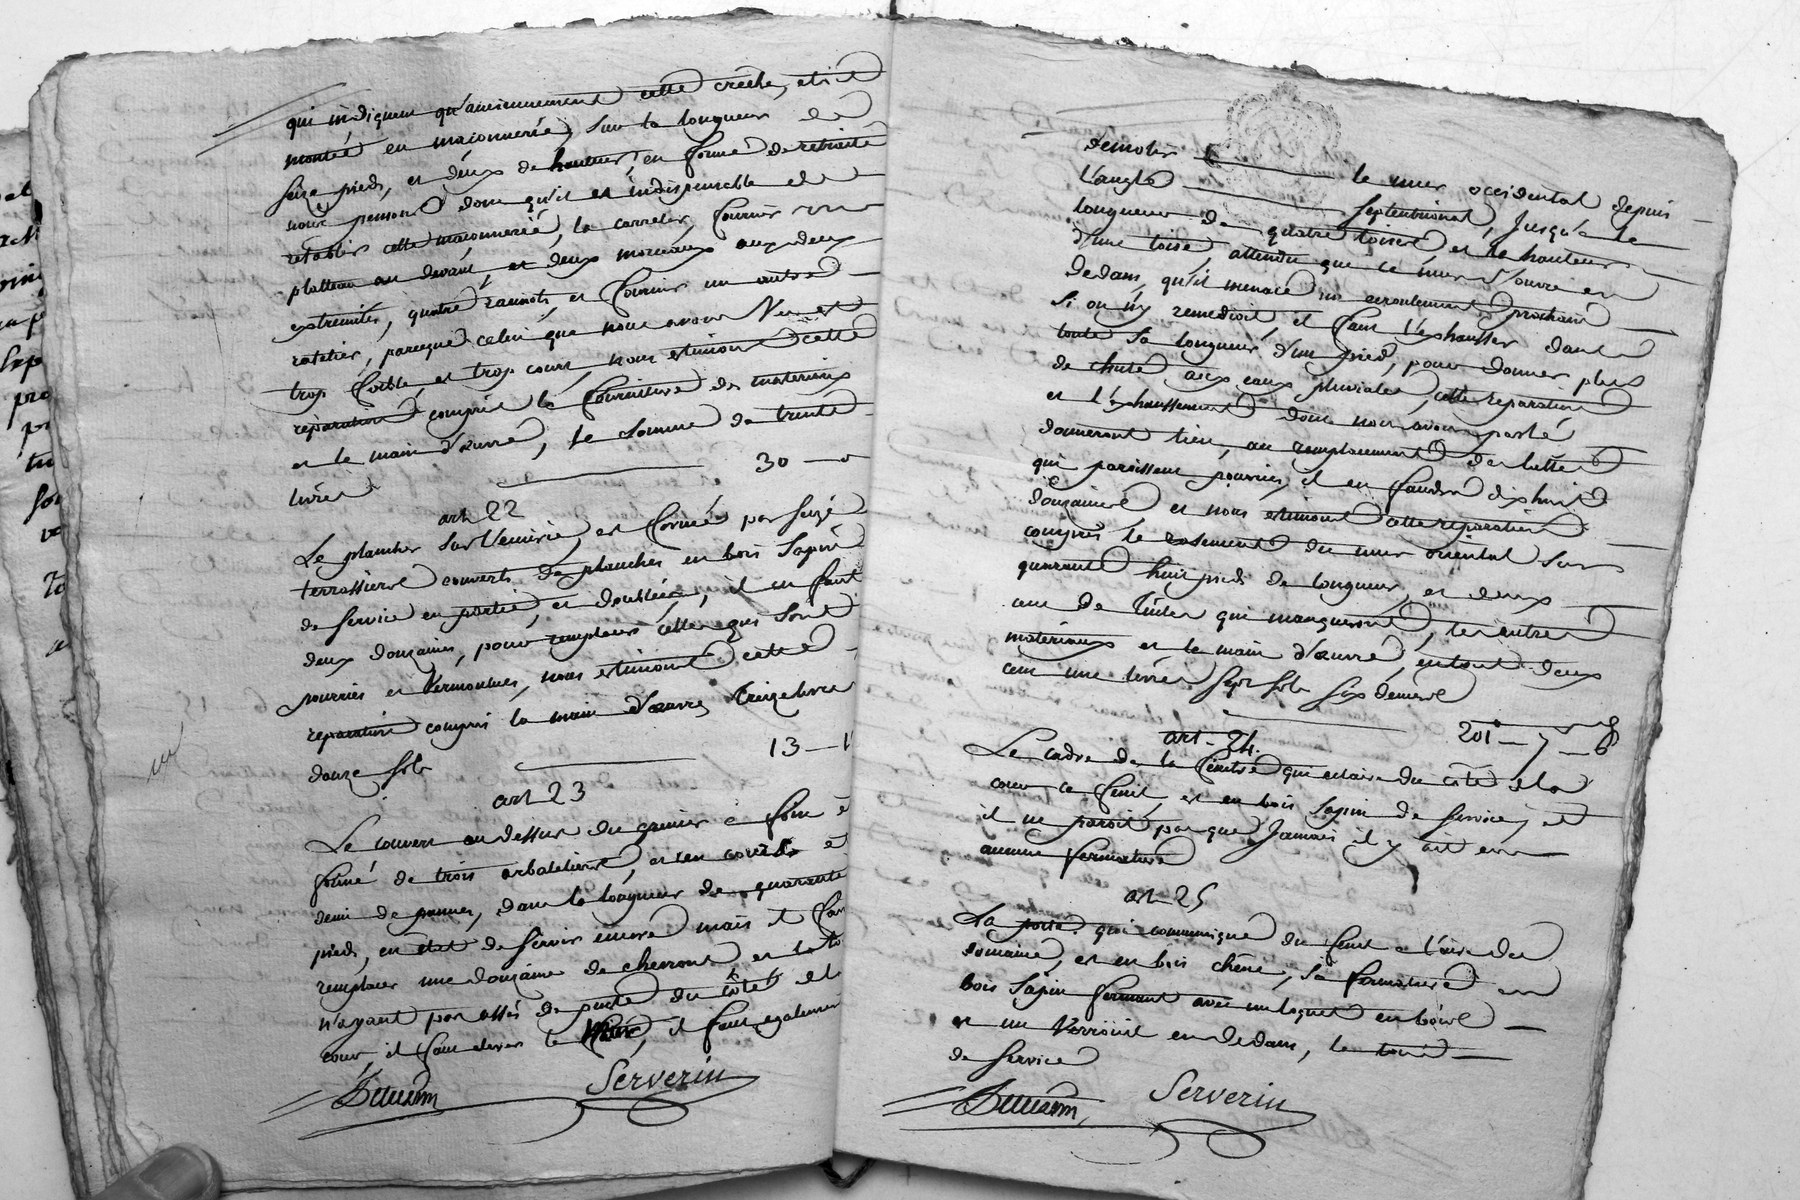 qui indiquent qu'anciennement cette crêche, etoit
montée en maconnerie, sur la longueur de
seize pieds, et deux de hauteur, en forme de retraite
nous pensons donc qu'il est indispensable de
retablir cette maconnerie, la carreler, fournir un
platteau au devant, et deux morceaux aux deux
extremités, quatre, et fournir un autre
ratelier, parceque celui que nous avons Vu est
trop foible, et trop court, nous estimons cette
réparation compris la fourniture des materiaux
et le main d'œuvre, la somme de trente
livres 30 — 0
art 22
Le plancher sur l'ecurie, est formé par seize
terrossiers couverts de planches en bois sapin
de service en partie, et doublées, il en faut
deux douzaines, pour remplacer celles qui sont
pourries et vermoulues, nous estimons cette
reparation compris la main d'œuvre, treize livres
douze sols 13 — 1
art 23
Le couvert au dessus du grenier à foin e
formé de trois arbaletiers, et un cours e
demi de pannes, dans la longueur de quarante
pieds, en état de servir encore mais il fau
remplacer une douzaine de chevrons et le to
n'ayant pas assés de pente du côté de
cour, il faut elever le mur, il faut egalement
Serverin
demolir le mur occidental depuis
l'angle septentrional, jusqu'a la
longueur de quatre toises, et la hauteur
d'une toise, attendu que ce mur s'ouvre en
dedans, qu'il menace un ecroulement prochain
si on n'y remedioit, il faut l'exhausser dans
toute sa longueur d'un pied, pour donner plus
de chute aux eaux pluviales, cette reparation
et l'exhaussement dont nous avons parlé
donneront lieu, au remplacement des lattes
qui paroissent pourries, il en faudra dix huit
douzaines et nous estimons cette reparation
compris le rasement du mur oriental sur
quarante huit pieds de longueur, et deux
cent de tuiles qui manqueront, les autres
materiaux et le main d'œuvre, en tout deux
cent une livres sept sols six deniers
201 — 7 — 6
art. 24.
Le cadre de la fenêtre qui eclaire du côté de la
cour ce fenil, est en bois sapin de service, et
il ne paroit pas que jamais il y ait eu
aucune fermeture
art 25
La porte qui communique du fenil a l'aire du
domaine, est en bois chêne, sa fermeture en
bois sapin fermant avec un loquet en bois
et un Verrouil en dedans, le tout
de service
Serverin